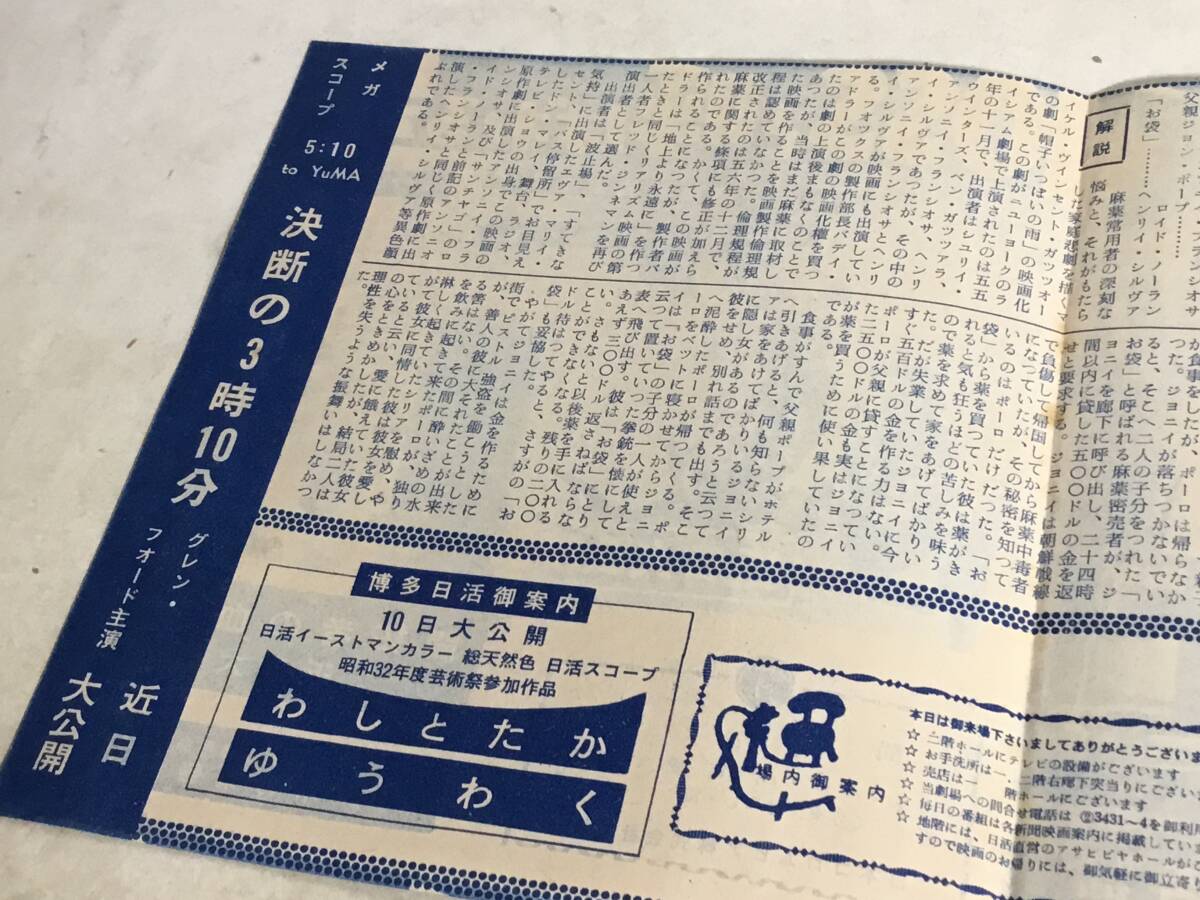 父親ジョン・ポープ……
ロイド・ノーラン
「お袋」…………ヘンリイ・シルヴァ
解説
麻薬常用者の深刻な
悩みと、それがもたら
した家庭悲劇を描くマ
イケル・ヴィンセント・ガッツオー
の劇「帽子いっぱいの雨」の映画化
である。この劇がニューヨークのラ
イシアム劇場で上演されたのは五五
年の十一月で、出演者はシェリイ・
ウインターズ、ベン・ガッツァラ、
アンソニイ・フランシオサ、ヘンリ
イ・シルヴァであつたが、その中の
アンソニイ・フランシオサとヘンリ
イ・シルヴァが映画にも出演してい
る。フオックスの製作部長バディ・
アドラーがこの劇の映画化権を買つ
たのは劇の上演後まもなくのことで
あつたが、当時はまだ麻薬に取材し
た映画を作ることを映画製作倫理規
程は認めていなかつた。倫理規程が
改正されたのは五六年の十二月で、
麻薬に関する条項にも修正が加えら
れたのである。かくて、この映画が
作られることになつたが、製作者バ
ドラーは「地上より永遠に」を作つ
たときと同じくリアリズム映画の第
一人者フレッド・ジンネマンを再び
演出者として選んだ。
出演者は「波止場」、「すてきな
気持」に出演したエヴァ・マリイ・
セント、「バス停留所」でお目見え
したドン・マレイ、舞台、ラジオ、
テレビ・ショウの出身でこの映画の
原作劇に出演したアンソニイ・フラ
ンシオサ、及び「サンチャゴ」のロ
イド・ノーランと前記のアンソニオ
・フランシオサと同じく原作劇に出
演したヘンリイ・シルヴァ等異色顔
ぶれである。
が食事をしたが、ポーロは帰らなか
つた。ジョニイが落ちつかないでい
ると、そこへ二人の子分をつれた「
お袋」と呼ばれる麻薬密売者が、ジ
ョニイを廊下に呼び出し、二十四時
間以内に貸した五〇〇ドルの金を返
せと要求する。ジョニイは朝鮮戦線
で負傷して帰国してから麻薬中毒者
になつていたが、その秘密を知つて
いるのはポーロだけだつた。「お
袋」から薬を買つていた彼は薬がき
れると気も狂うほどの苦しみを味う
ので薬を求めて家をあげてばかりい
た。だが失業していたジョニイに今
すぐ五百ドルの金を作る力はない。
ポーロが父親に貸すことになつてい
た二五〇〇ドルの金も実はジョニイ
が薬を買うために使い果していたの
である。
食事がすんで父親ポープがホテル
へ引きあげると、何も知らないシリ
アは家をあけてばかりいるジョニイ
に隠し女があるのであろうと云つて
彼をせめ、別れ話までも出す。そこ
へ泥酔したポーロが帰つてくる。ポ
ーロをベットに寝かせてからジョニ
イは「お袋」の子分の一人が使えと
云つて置いていつた拳銃を懐にして
表へ飛び出す。彼は「お袋」にとり
あえず三〇〇ドル返さねばならな
い。さもないと以後薬を手に入れる
ことができなくなる。残りの二〇〇
ドル待つてやると、さすがの「お
袋」も妥協した。
やがてジョニイは金を作るために
街でピストル強盗を働こうとした
が、善人の彼に大それたことが出来
る筈はない。その間に酔いざめの水
を飲みに起きて来たポーロが、独り
淋しく起きていたシリアを慰め、や
がて彼女に同情した彼は彼女を愛し
ていると云い、愛に餓えていた彼女
の心をときめかしたが、結局二人は
理性を失うような振舞いはしなかつ
た。
メガ
スコープ
5:10
to YuMA
決断の3時10分
グレン・
フオード主演
近日
大公開
博多日活御案内
10日大公開
日活イーストマンカラー 総天然色 日活スコープ
昭和32年度芸術祭参加作品
わしとたか
ゆうわく
場内御案内
本日は御来場下さいましてありがとうございま
☆ 二階ホールにテレビの設備がございます
☆ お手洗所は一、二階右廊下突当りにござい
☆ 売店は一階ホールにございます
☆ 当劇場への問合せ電話は ②3431〜4を御利
☆ 毎日の番組は各新聞映画案内に掲載していま
☆ 地階には、日活直営のアサヒビヤホールが
すので映画のお帰りには、御気軽に御立寄